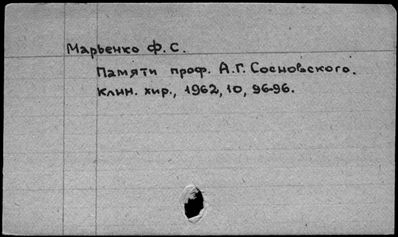 Марьенко Ф. С.
Памяти проф. А.Г. Сосновского.
Клин. хир., 1962, 10, 96-96.